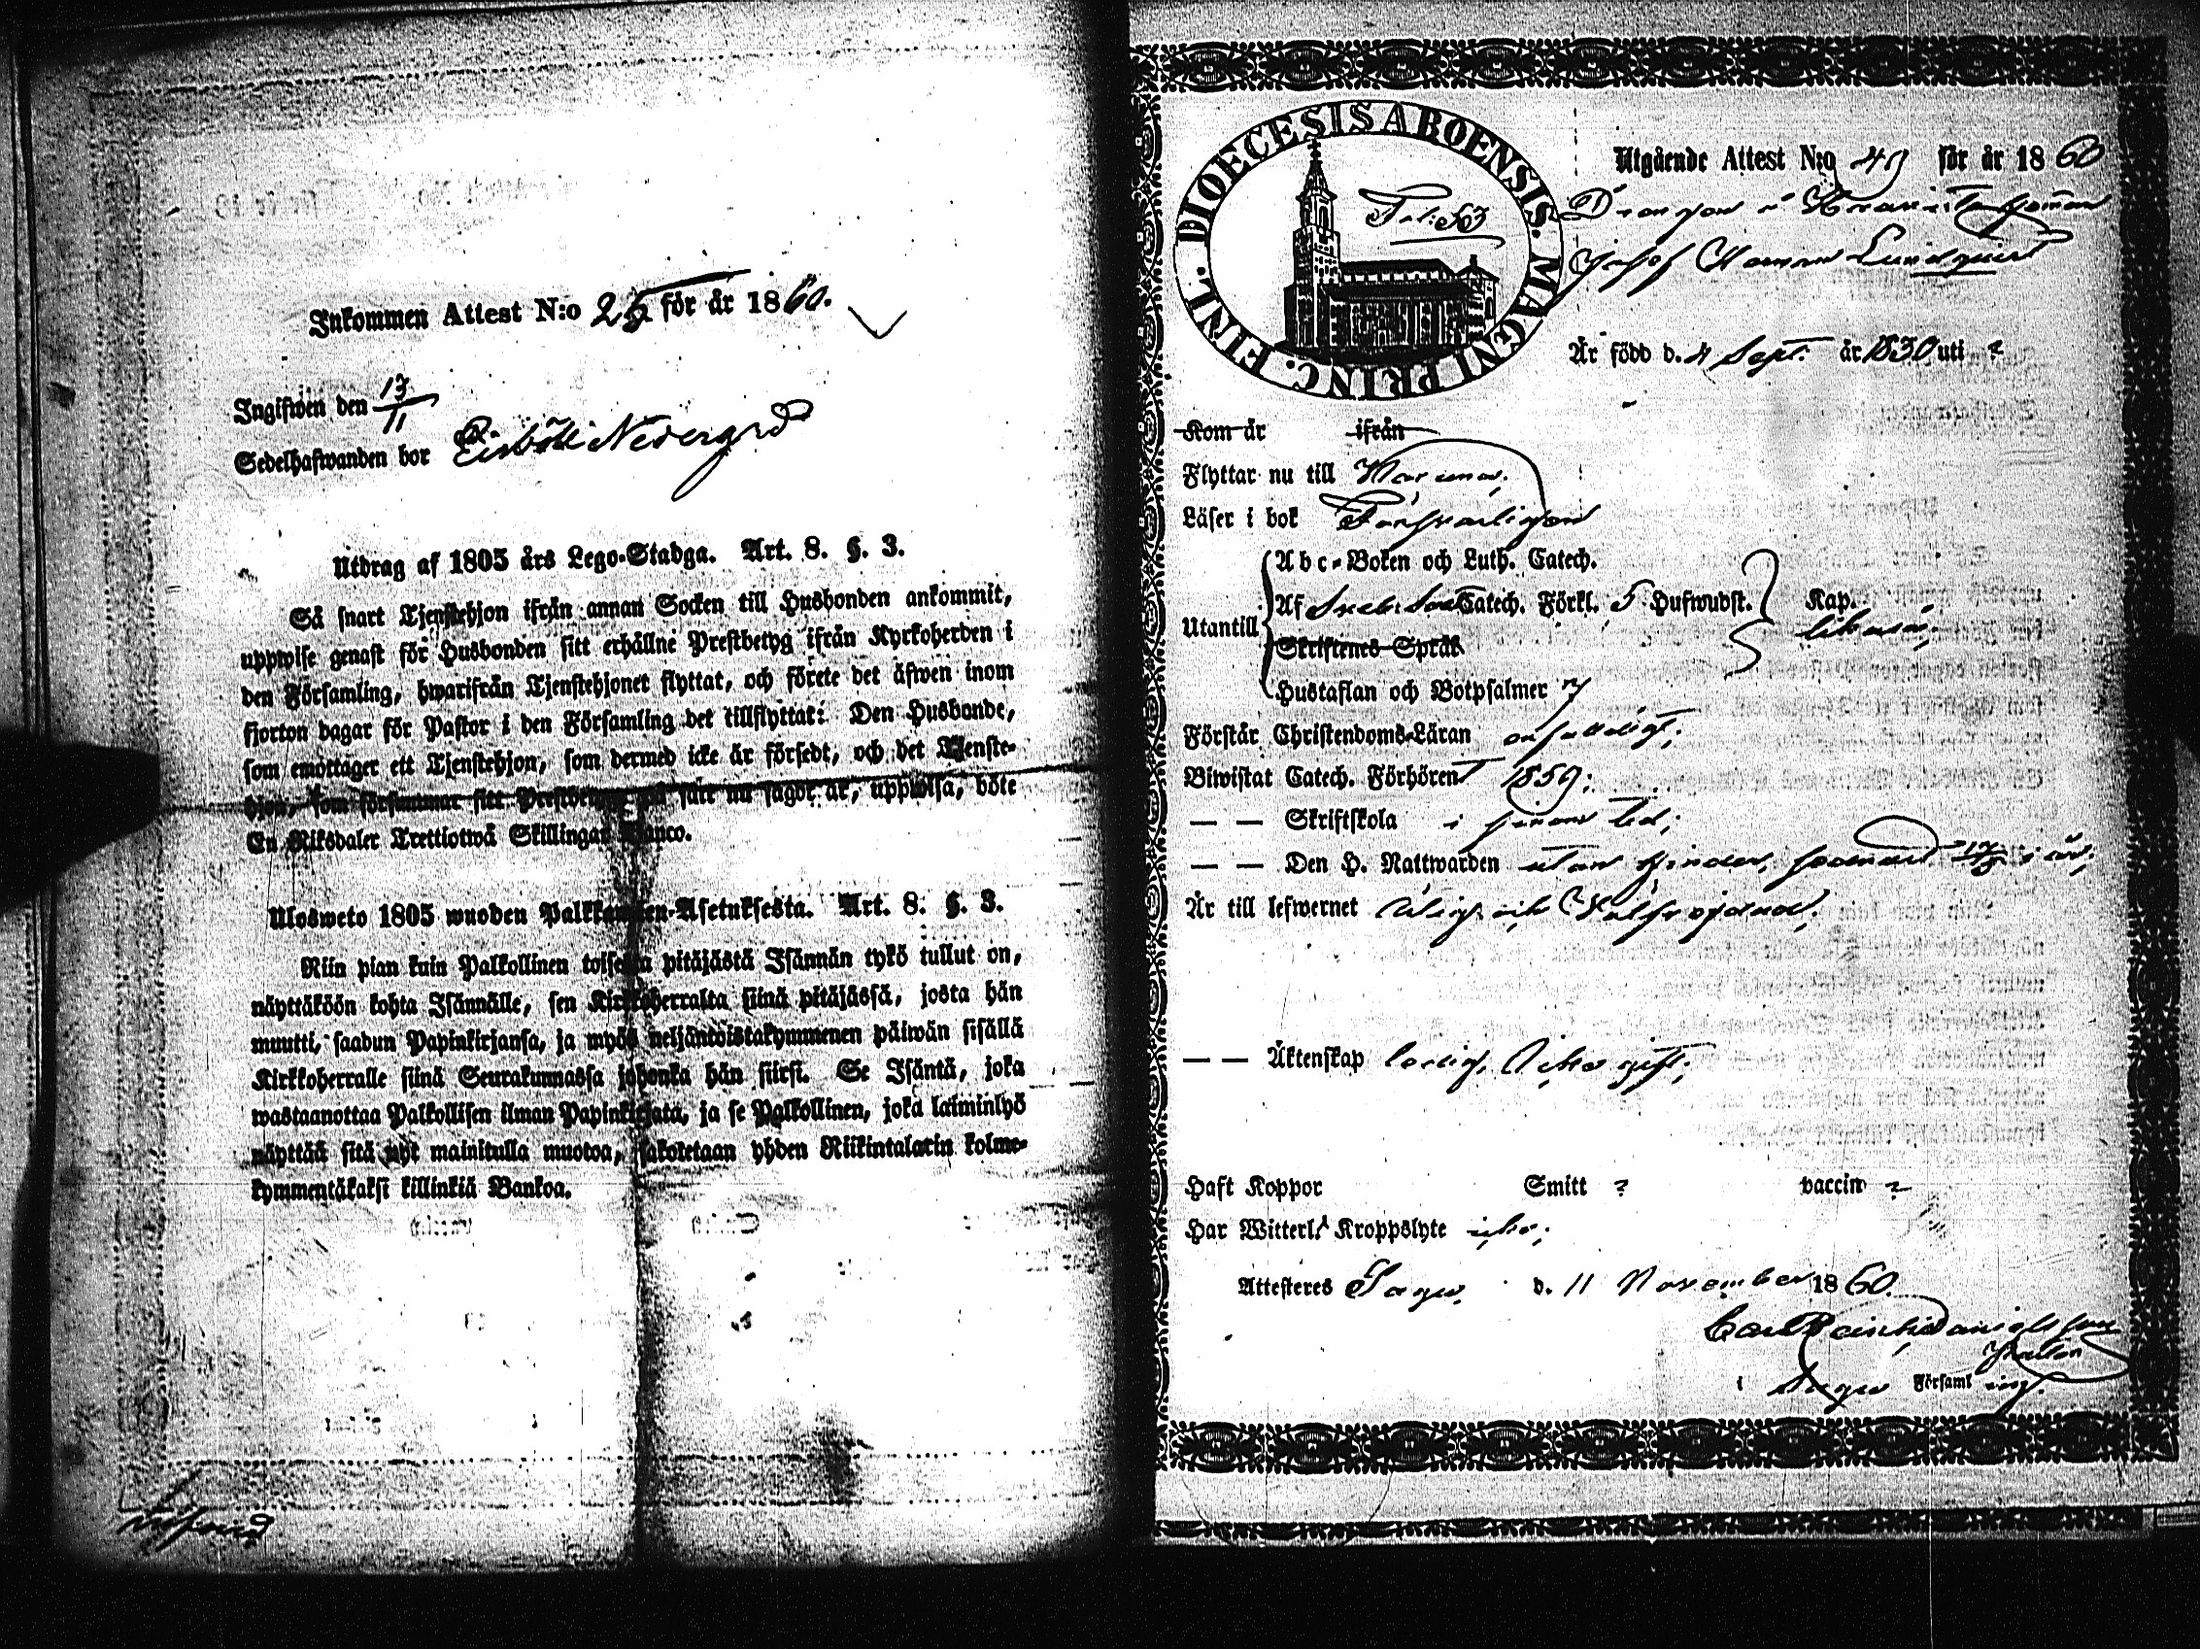 Inkommen Attest N:o 25 för år 1860.
Ingifwen den 13/11
Sedelhafwanden bor Nedergrd
Utdrag af 1805 års Lego-Stadga. Art. 8. §. 3.
Så snart Tjenstehjon ifrån annan Socken till Husbonden ankommit,
uppwise genast för Husbonden sitt erhållne Prestbetyg ifrån Kyrkoherden i
den Församling, hwarifrån Tjenstehjonet flyttat, och förete det äfwen inom
fjorton dagar för Pastor i den Församling det tillflyttat: Den Husbonde,
som emottager ett Tjenstehjon, som dermed icke är försedt, och det Tjenste-
hjon, som försummar sitt Prestbetyg på sätt nu sagdt är, uppwisa, böte
En Riksdaler Trettiotwå Skillingar Banco.
Ulosweto 1805 wuoden Palkkawäen-Asetuksesta. Art. 8. §. 3.
Niin pian kuin Palkollinen toisesta pitäjästä Isännän tykö tullut on,
näyttäköön kohta Isännälle, sen Kirkkoherralta siinä pitäjässä, josta hän
muutti, saadun Papinkirjansa, ja myös neljäntoistakymmenen päiwän sisällä
Kirkkoherralle siinä Seurakunnassa johonka hän siirsi. Se Isäntä, joka
wastaanottaa Palkollisen ilman Papinkirjata, ja se Palkollinen, joka laiminlyö
näyttää sitä nyt mainitulla muotoa, sakotetaan yhden Riikintalarin kolme-
kymmentäkaksi killinkiä Bankoa.
DIOECESIS ABOENSIS. MAGNI PRINC. FINL.
Fol: 53
Utgående Attest N:o för år 1860
Drengen
Lindqvist
Är född d. 4 Sept. år 1830 uti ?
Kom år ifrån
Flyttar nu till
Läser i bok Försvarligen
Utantill
Abc-Boken och Luth. Catech.
Af Catech. Förkl. 5 Hufwudst. Kap.
likaså;
Skriftenes Språk
Hustaflan och Botpsalmer
Förstår Christendoms-Läran
Biwistat Catech. Förhören 1859;
— — Skriftskola i sinom tid;
— — Den H. Nattwarden utan hinder, i år;
Är till lefwernet ärlig och
— — Äktenskap ledig, icke gift;
Haft Koppor Smitt ? vaccin ?
Har Witterl. Kroppslyte icke;
Attesteres Sagu d. 11 November 1860.
i Sagu Församling.